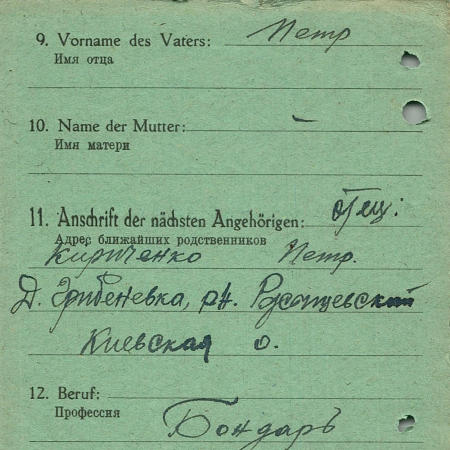 9. Vorname des Vaters: Петр
Имя отца
10. Name der Mutter: —
Имя матери
11. Anschrift der nächsten Angehörigen: отец:
Адрес ближайших родственников
Кириченко Петр.
Д. Грибеневка, рн.
Киевская о.
12. Beruf:
Профессия
Бондарь